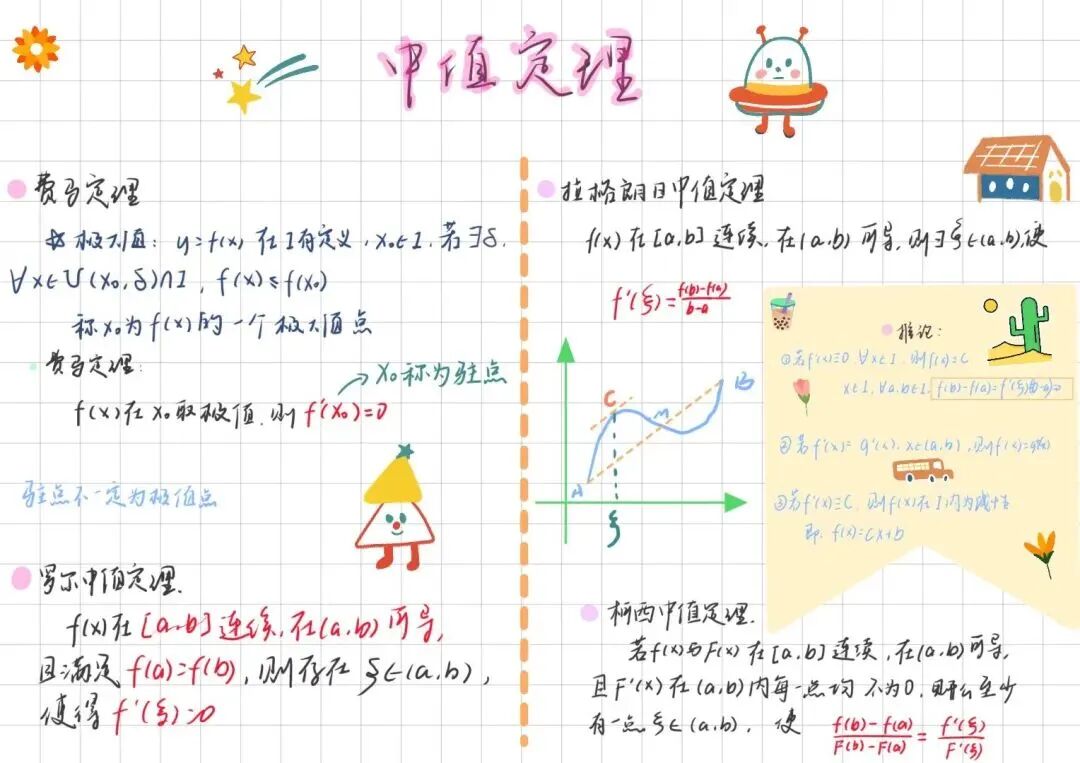 中值定理
费马定理
极大值：y=f(x) 在I有定义，x₀∈I，若∃δ，
∀x∈U(x₀,δ)∩I，f(x)≤f(x₀)
称x₀为f(x)的一个极大值点
费马定理：
x₀称为驻点
f(x)在x₀取极值，则f'(x₀)=0
驻点不一定为极值点
罗尔中值定理.
f(x)在[a,b]连续，在(a,b)可导，
且满足f(a)=f(b)，则存在ξ∈(a,b)，
使得f'(ξ)=0
拉格朗日中值定理
f(x)在[a,b]连续，在(a,b)可导，则∃ξ∈(a,b)，使
f'(ξ)=\frac{f(b)-f(a)}{b-a}
C
M
B
A
ξ
推论：
①若f'(x)≡0，∀x∈I，则f(x)=C
x∈I，∀a,b∈I，f(b)-f(a)=f'(ξ)(b-a)=0
②若f'(x)=g'(x)，x∈(a,b)，则f(x)=g(x)
③若f'(x)≡C，则f(x)在I内为
即 f(x)=Cx+b
柯西中值定理.
若f(x)与F(x)在[a,b]连续，在(a,b)可导，
且F'(x)在(a,b)内每一点均不为0，那么至少
有一点ξ∈(a,b)，使 \frac{f(b)-f(a)}{F(b)-F(a)}=\frac{f'(ξ)}{F'(ξ)}